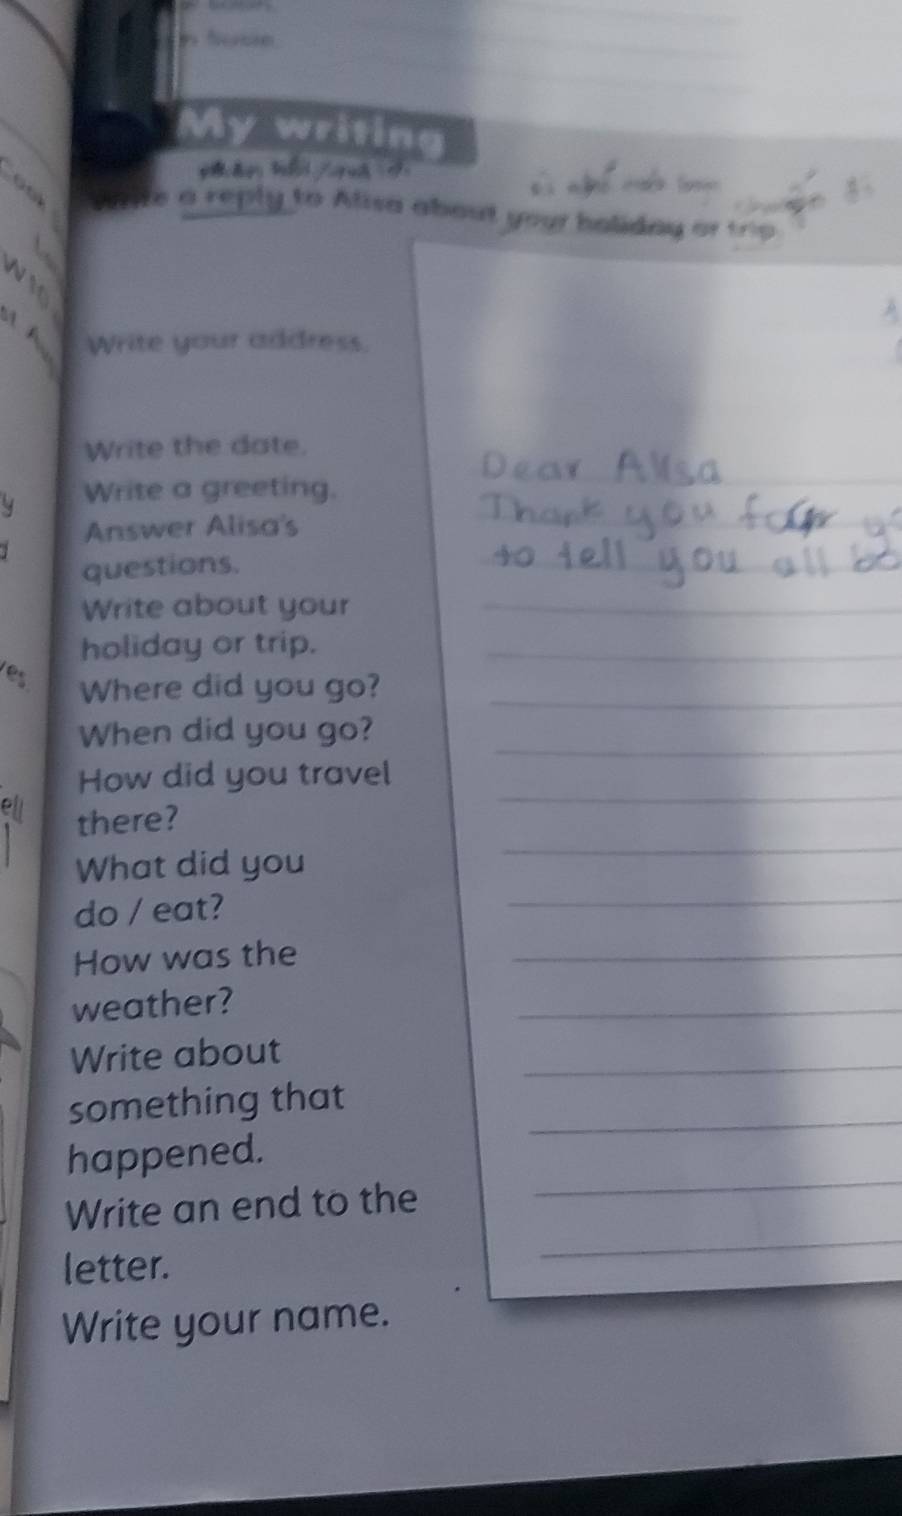 My writing
Write a reply to Alisa about your holiday or trip.
Write your address.
Write the date.
Dear Alisa
Write a greeting.
Thank you for
Answer Alisa's
to tell you all
questions.
Write about your
holiday or trip.
Where did you go?
When did you go?
How did you travel
there?
What did you
do / eat?
How was the
weather?
Write about
something that
happened.
Write an end to the
letter.
Write your name.